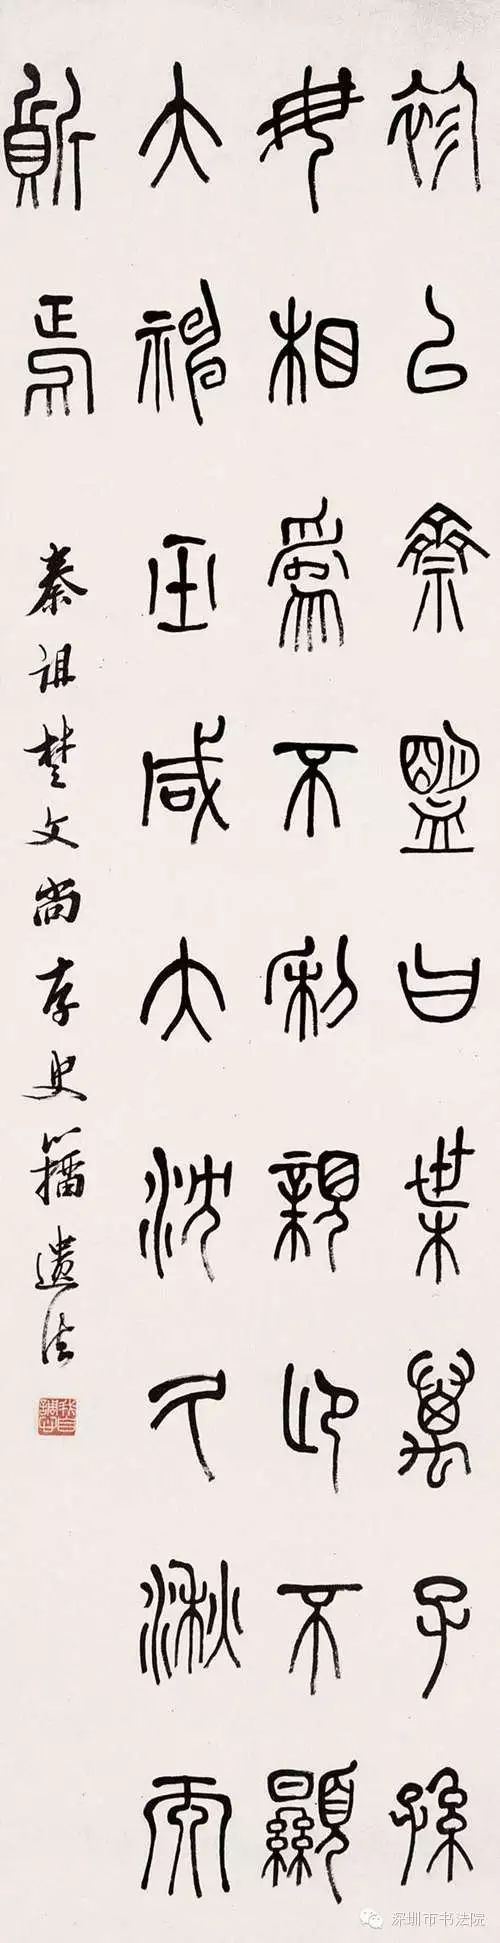 袗以齋盟曰枼萬子孫
毋相爲不利親卬不顯
大神巫咸大沈久湫而
質焉
秦詛楚文尚存史籀遺法
深圳市书法院